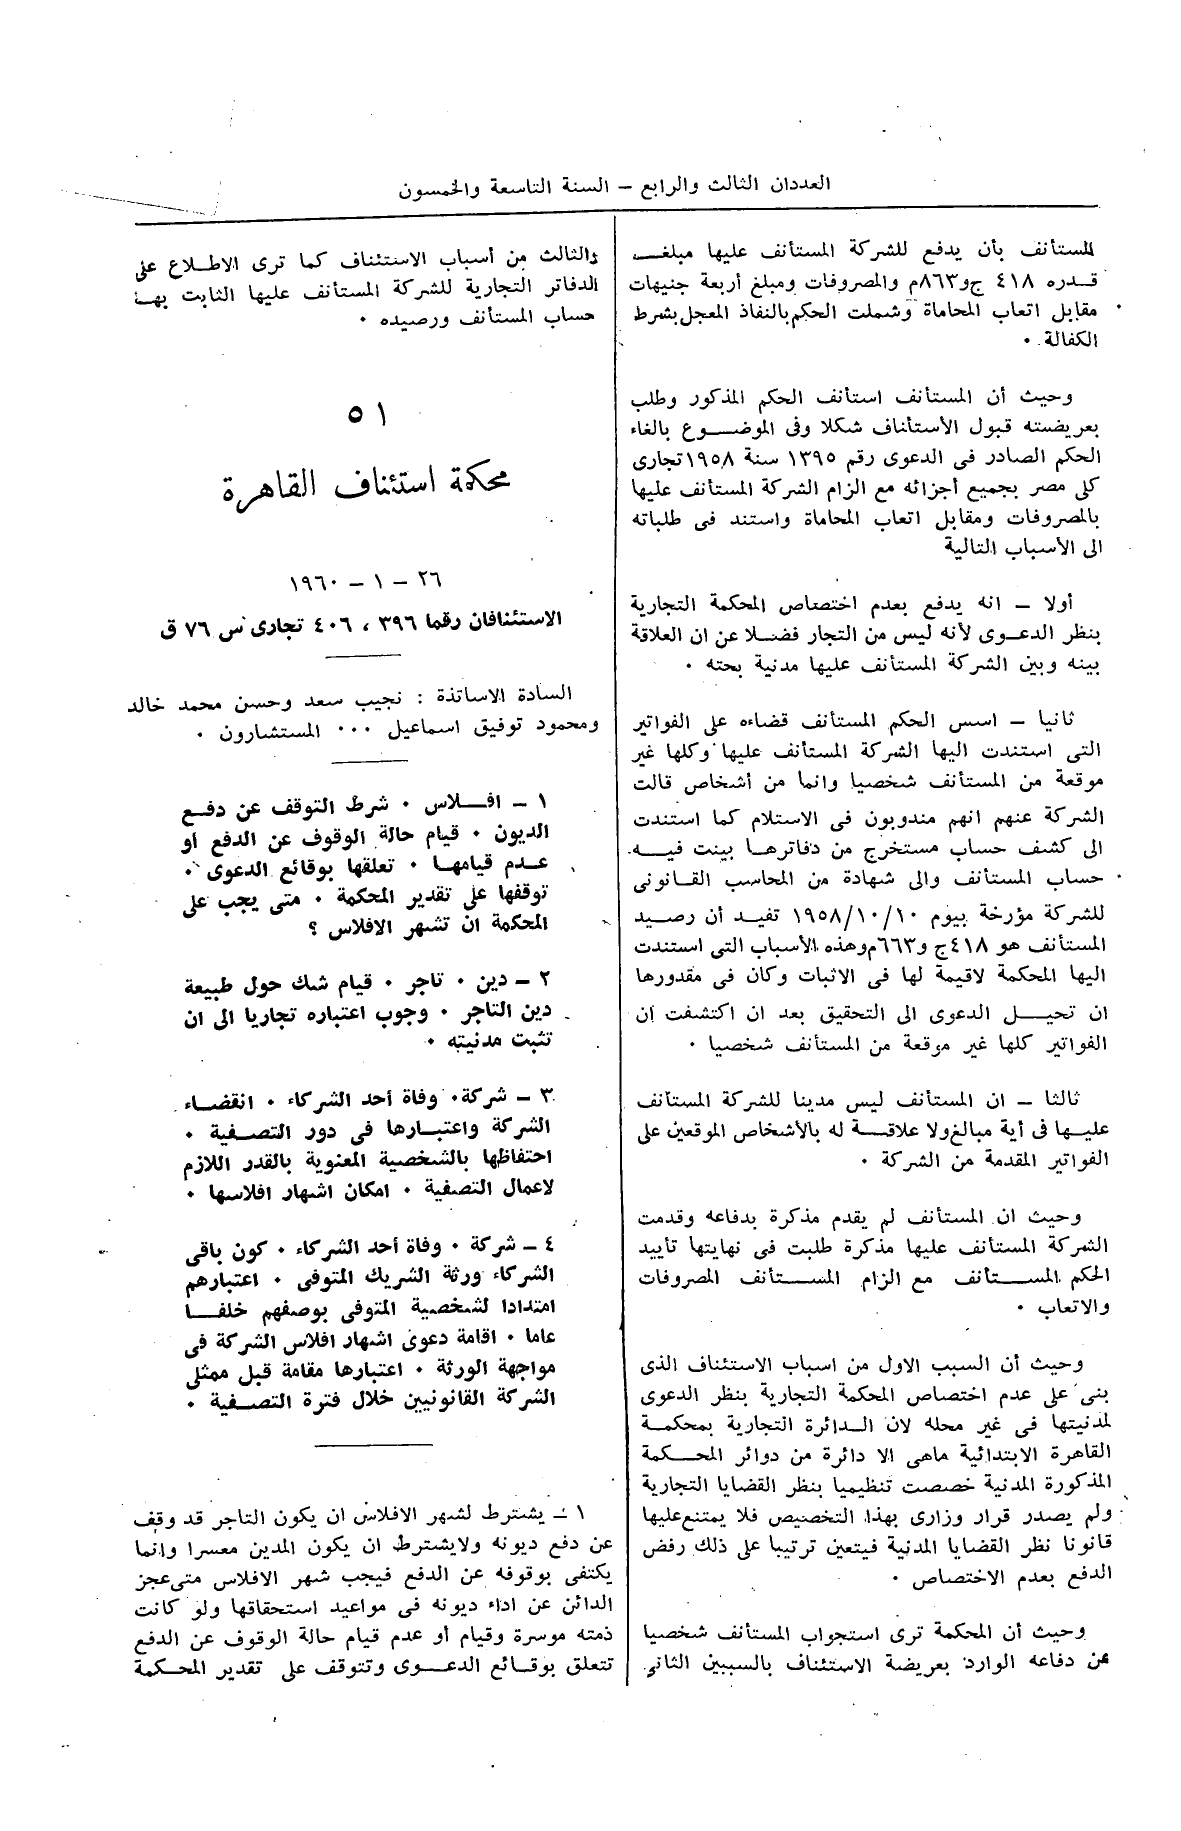 العددان الثالث والرابع – السنة التاسعة والخمسون
المستأنف بأن يدفع للشركة المستأنف عليها مبلغــ
قــدره ٤١٨ ج و٨٦٣م والمصروفات ومبلغ أربعة جنيهات
مقابل اتعاب المحاماة وشملت الحكم بالنفاذ المعجل بشرط
الكفالة .
وحيث أن المستأنف استأنف الحكم المذكور وطلب
بعريضته قبول الأستئناف شكلا وفى الموضــوع بالغاء
الحكم الصادر فى الدعوى رقم ١٣٩٥ سنة ١٩٥٨ تجارى
كلى مصر بجميع أجزائه مع الزام الشركة المستأنف عليها
بالمصروفات ومقابل اتعاب المحاماة واستند فى طلباته
الى الأسباب التالية
أولا – انه يدفع بعدم اختصاص المحكمة التجارية
بنظر الدعــوى لأنه ليس من التجار فضــلا عن ان العلاقة
بينه وبين الشركة المستأنف عليها مدنية بحته .
ثانيا – اسس الحكم المستأنف قضاءه على الفواتير
التى استندت اليها الشركة المستأنف عليها وكلها غير
موقعة من المستأنف شخصيا وانما من أشخاص قالت
الشركة عنهم انهم مندوبون فى الاستلام كما استندت
الى كشف حساب مستخرج من دفاترهــا بينت فيــه
حساب المستأنف والى شهادة من المحاسب القــانونى
للشركة مؤرخة بيوم ١٩٥٨/١٠/١٠ تفيــد أن رصــيد
المستأنف هو ٤١٨ج و٦٦٣م وهذه الأسباب التى استندت
اليها المحكمة لاقيمة لها فى الاثبات وكان فى مقدورها
ان تحيــل الدعوى الى التحقيق بعد ان اكتشفت ان
الفواتير كلها غير موقعة من المستأنف شخصيا .
ثالثا – ان المستأنف ليس مدينا للشركة المستأنف
عليــها فى أية مبالغ ولا علاقــة له بالأشخاص الموقعين على
الفواتير المقدمة من الشركة .
وحيث ان المستأنف لم يقدم مذكرة بدفاعه وقدمت
الشركة المستأنف عليها مذكرة طلبت فى نهايتها تأييد
الحكم المســتأنف مع الزام المســتأنف المصروفات
والاتعاب .
وحيث أن السبب الاول من اسباب الاستئناف الذى
بنى على عدم اختصاص المحكمة التجارية بنظر الدعوى
لمدنيتها فى غير محله لان الــدائرة التجارية بمحكمــة
القاهرة الابتدائية ماهى الا دائرة من دوائر المحــكمة
المذكورة المدنية خصصت تنظيميا بنظر القضايا التجارية
ولم يصدر قرار وزارى بهذا التخصيص فلا يمتنع عليها
قانونا نظر القضايا المدنية فيتعين ترتيبا على ذلك رفض
الدفع بعدم الاختصاص .
وحيث أن المحكمة ترى استجواب المستأنف شخصيا
عن دفاعه الوارد بعريضة الاستئناف بالسببين الثانى
والثالث من أسباب الاستئناف كما ترى الاطــلاع على
الدفاتر التجارية للشركة المستأنف عليها الثابت بهــا
حساب المستأنف ورصيده .
٥١
محكمة استئناف القاهرة
٢٦ – ١ – ١٩٦٠
الاستئنافان رقما ٣٩٦ ، ٤٠٦ تجارى س ٧٦ ق
السادة الاساتذة : نجيب سعد وحسن محمد خالد
ومحمود توفيق اسماعيل ... المستشارون .
١ – افــلاس . شرط التوقف عن دفــع
الديون . قيام حالة الوقوف عن الدفع أو
عــدم قيامهــا . تعلقها بوقائع الدعوى .
توقفها على تقدير المحكمة . متى يجب على
المحكمة ان تشهر الافلاس ؟
٢ – دين . تاجر . قيام شك حول طبيعة
دين التاجر . وجوب اعتباره تجاريا الى ان
تثبت مدنيته .
٣ – شركة . وفاة أحد الشركاء . انقضــاء
الشركة واعتبــارها فى دور التصــفية .
احتفاظها بالشخصية المعنوية بالقدر اللازم
لاعمال التصفية . امكان اشهار افلاسها .
٤ – شركة . وفاة أحد الشركاء . كون باقى
الشركاء ورثة الشريك المتوفى . اعتبارهم
امتدادا لشخصية المتوفى بوصفهم خلفــا
عاما . اقامة دعوى اشهار افلاس الشركة فى
مواجهة الورثة . اعتبارها مقامة قبل ممثلى
الشركة القانونيين خلال فترة التصــفية .
١ – يشترط لشهر الافلاس ان يكون التاجر قد وقف
عن دفع ديونه ولايشترط ان يكون المدين معسرا وانما
يكتفى بوقوفه عن الدفع فيجب شهر الافلاس متى عجز
الدائن عن اداء ديونه فى مواعيد استحقاقها ولو كانت
ذمته موسرة وقيام أو عدم قيام حالة الوقوف عن الدفع
تتعلق بوقــائع الدعــوى وتتوقف على تقدير المحــكمة